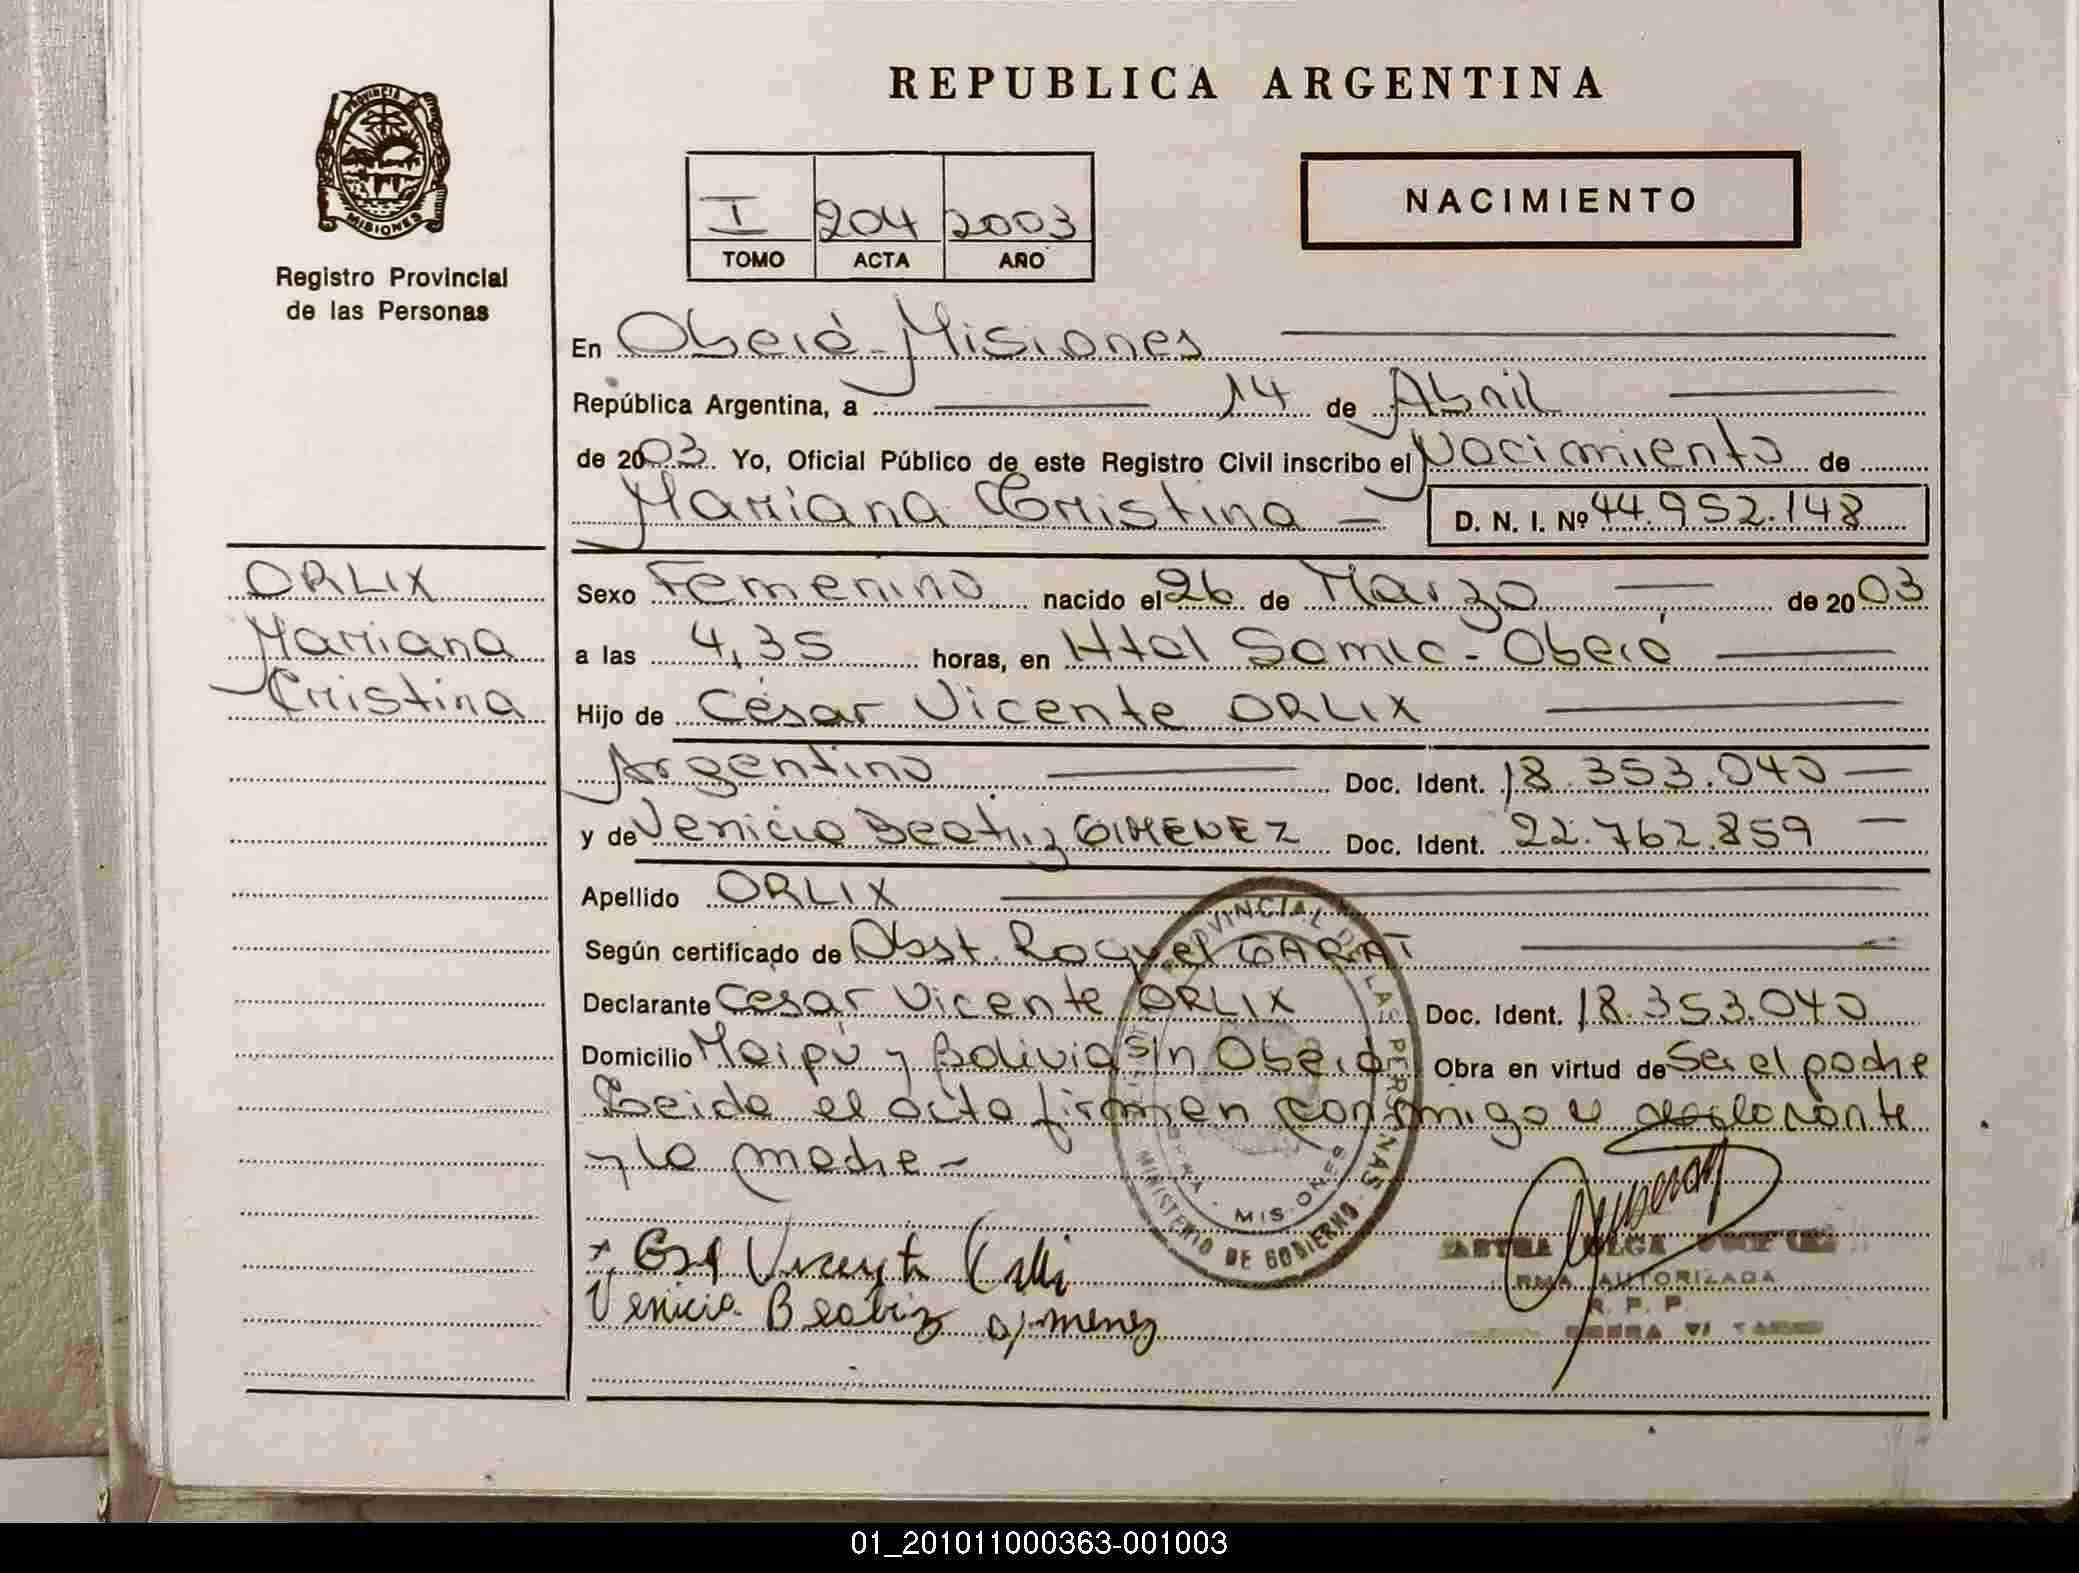 REPUBLICA ARGENTINA
PROVINCIA DE
MISIONES
Registro Provincial
de las Personas
I 204 2003
TOMO ACTA AÑO
NACIMIENTO
En Oberá - Misiones
República Argentina, a 14 de Abril
de 2003 Yo, Oficial Público de este Registro Civil inscribo el Nacimiento de
Mariana Cristina — D. N. I. Nº 44.952.148
ORLIX
Mariana
Cristina
Sexo Femenino nacido el 26 de Marzo de 2003
a las 4,35 horas, en Htal Samic - Oberá
Hijo de César Vicente ORLIX
Argentino Doc. Ident. 18.353.040 —
y de Venicia Beatriz GIMENEZ Doc. Ident. 22.762.859 —
Apellido ORLIX
Según certificado de Obst. Raquel GARAT
Declarante César Vicente ORLIX Doc. Ident. 18.353.040
Domicilio Maipú y Bolivia s/n Oberá Obra en virtud de Ser el padre
Leida el acta firman conmigo el declarante
y la madre -
PROVINCIAL DE LAS PERSONAS
MINISTERIO DE GOBIERNO
MISIONES
Vicente
Venicia Beatriz Gimenez
FIRMA AUTORIZADA
R. P. P.
01_201011000363-001003